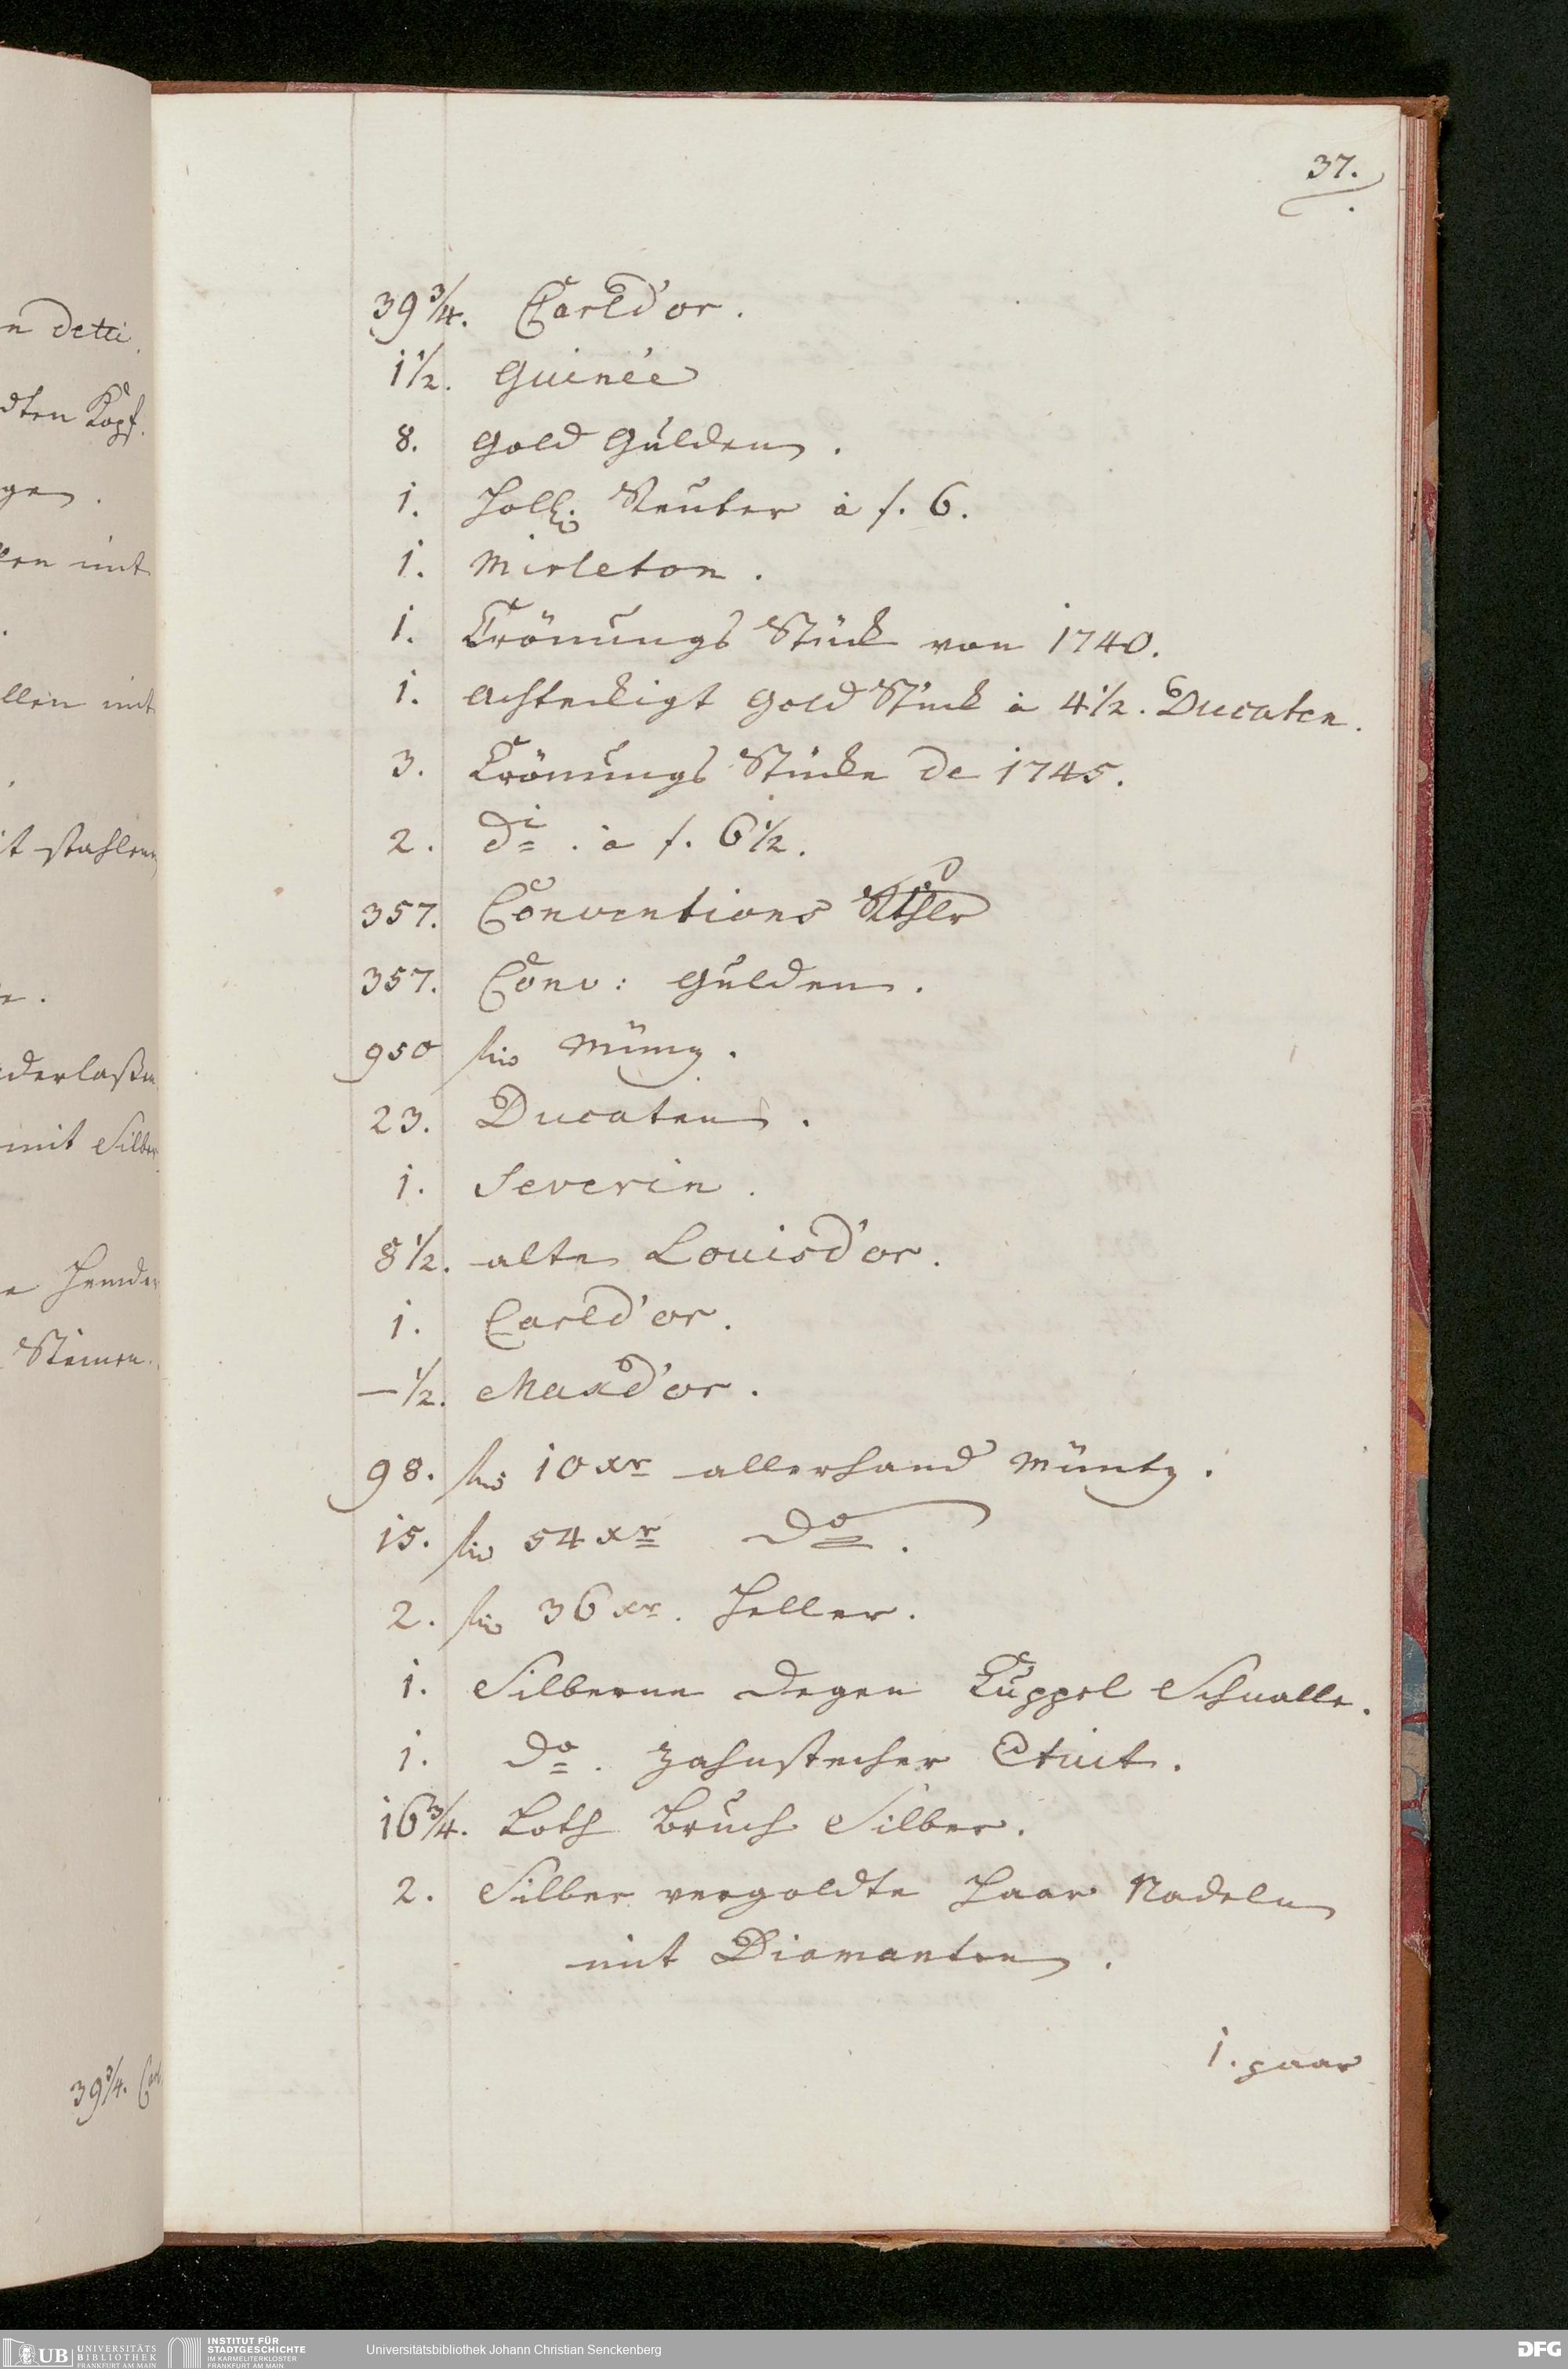 37.
39 3/4. Carld'or.
1 1/2. Guinée
8. Gold Gulden.
1. Holl: Reuter à f. 6.
1. Mirleton.
1. Crönungs Stück von 1740.
1. Achteckigt Gold Stück à 4 1/2. Ducaten.
3. Crönungs Stücke de 1745.
2. di. à f. 6 1/2.
357. Conventions Rthlr
357. Conv: Gulden.
950 Müntz.
23. Ducaten.
1. Severin.
8 1/2. alte Louisd'or.
1. Carld'or.
— 1/2. Maxd'or.
98. 10 xr allerhand Müntz.
15. 54 xr do.
2. 36 xr. Heller.
1. Silberne Degen Kuppel Schnalle.
1. do. Zahnstecher Etuit.
16 3/4. Loth Bruch Silber.
2. Silber vergoldte Haar Nadeln
mit Diamanten.
1. paar
n detti.
dten Kopf.
gen.
mit
llen mit
it stahlen
mit Silber
Hemder
Steinen.
39 3/4.
UB UNIVERSITÄTS
BIBLIOTHEK
FRANKFURT AM MAIN
INSTITUT FÜR
STADTGESCHICHTE
IM KARMELITERKLOSTER
FRANKFURT AM MAIN
Universitätsbibliothek Johann Christian Senckenberg
DFG